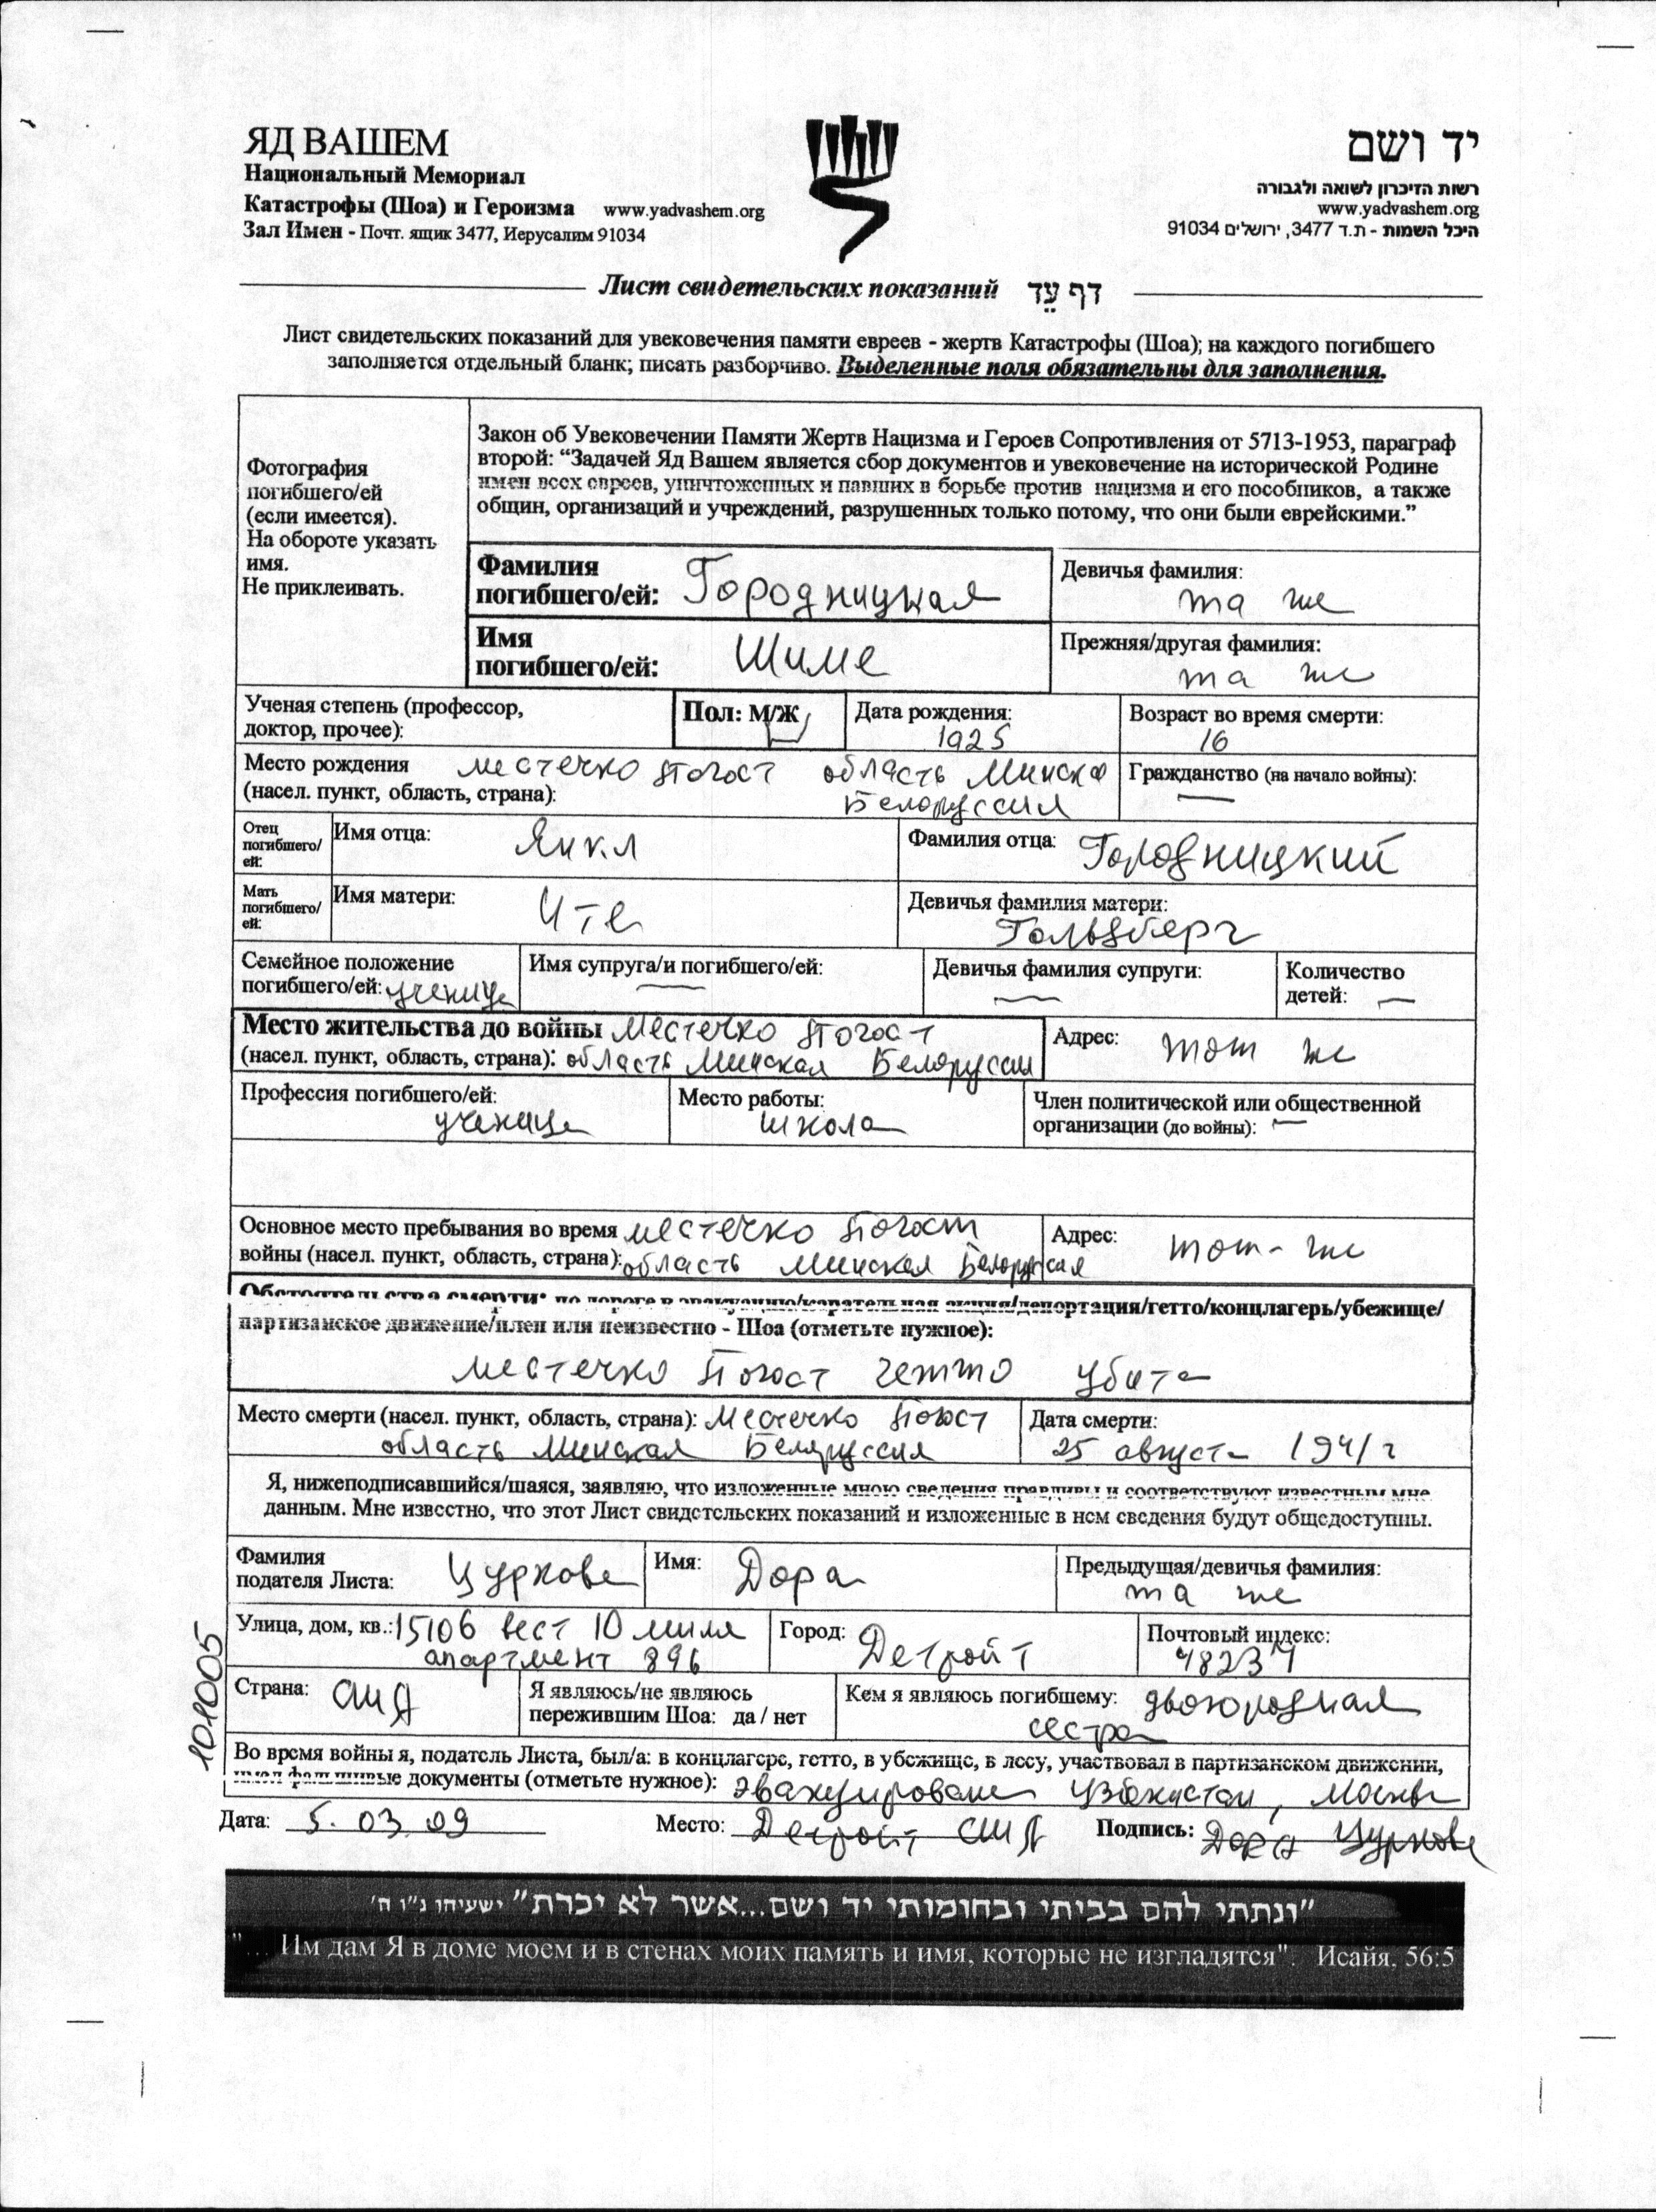 ЯД ВАШЕМ
Национальный Мемориал
Катастрофы (Шоа) и Героизма www.yadvashem.org
Зал Имен - Почт. ящик 3477, Иерусалим 91034
יד ושם
רשות הזיכרון לשואה ולגבורה
www.yadvashem.org
היכל השמות - ת.ד 3477, ירושלים 91034
Лист свидетельских показаний דף עֵד
Лист свидетельских показаний для увековечения памяти евреев - жертв Катастрофы (Шоа); на каждого погибшего
заполняется отдельный бланк; писать разборчиво. Выделенные поля обязательны для заполнения.
Фотография
погибшего/ей
(если имеется).
На обороте указать
имя.
Не приклеивать.
Закон об Увековечении Памяти Жертв Нацизма и Героев Сопротивления от 5713-1953, параграф
второй: “Задачей Яд Вашем является сбор документов и увековечение на исторической Родине
имен всех евреев, уничтоженных и павших в борьбе против нацизма и его пособников, а также
общин, организаций и учреждений, разрушенных только потому, что они были еврейскими.”
Фамилия
погибшего/ей: Городницкая
Девичья фамилия:
та же
Имя
погибшего/ей: Шиме
Прежняя/другая фамилия:
та же
Ученая степень (профессор,
доктор, прочее):
Пол: М/Ж
Дата рождения:
1925
Возраст во время смерти:
16
Место рождения местечко Погост область Минска
(насел. пункт, область, страна): Белоруссия
Гражданство (на начало войны):
—
Отец
погибшего/
ей:
Имя отца: Янкл
Фамилия отца: Городницкий
Мать
погибшего/
ей:
Имя матери: Ите
Девичья фамилия матери:
Гольдберг
Семейное положение
погибшего/ей: ученица
Имя супруга/и погибшего/ей:
—
Девичья фамилия супруги:
—
Количество
детей: —
Место жительства до войны Местечко Погост
(насел. пункт, область, страна): область Минская Белоруссии
Адрес: тот же
Профессия погибшего/ей:
ученица
Место работы:
школа
Член политической или общественной
организации (до войны): —
Основное место пребывания во время местечко Погост
войны (насел. пункт, область, страна): область Минская Белоруссия
Адрес: тот-же
Обстоятельства смерти: по дороге в эвакуацию/карательная акция/депортация/гетто/концлагерь/убежище/
партизанское движение/плен или неизвестно - Шоа (отметьте нужное):
местечко Погост гетто убита
Место смерти (насел. пункт, область, страна): Местечко Погост
область Минская Белоруссия
Дата смерти:
25 августа 1941 г
Я, нижеподписавшийся/шаяся, заявляю, что изложенные мною сведения правдивы и соответствуют известным мне
данным. Мне известно, что этот Лист свидетельских показаний и изложенные в нем сведения будут общедоступны.
Фамилия
подателя Листа: Цуркова
Имя: Дора
Предыдущая/девичья фамилия:
та же
Улица, дом, кв.: 15106 вест 10 миля
апартмент 896
Город: Детройт
Почтовый индекс:
48237
Страна: США
Я являюсь/не являюсь
пережившим Шоа: да / нет
Кем я являюсь погибшему: двоюродная
сестра
101005
Во время войны я, податель Листа, был/а: в концлагере, гетто, в убежище, в лесу, участвовал в партизанском движении,
имел фальшивые документы (отметьте нужное): эвакуирована Узбекистан, Москва
Дата: 5. 03. 09
Место: Детройт США
Подпись: Дора Цуркова
"ונתתי להם בביתי ובחומותי יד ושם...אשר לא יכרת" ישעיהו נ"ו ה'
"... Им дам Я в доме моем и в стенах моих память и имя, которые не изгладятся". Исайя. 56:5